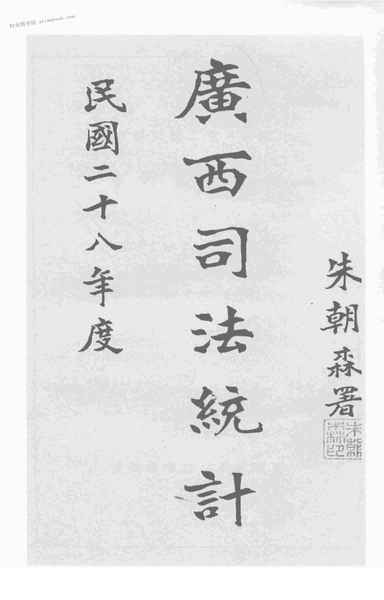 朱朝森署
廣西司法統計
民國二十八年度